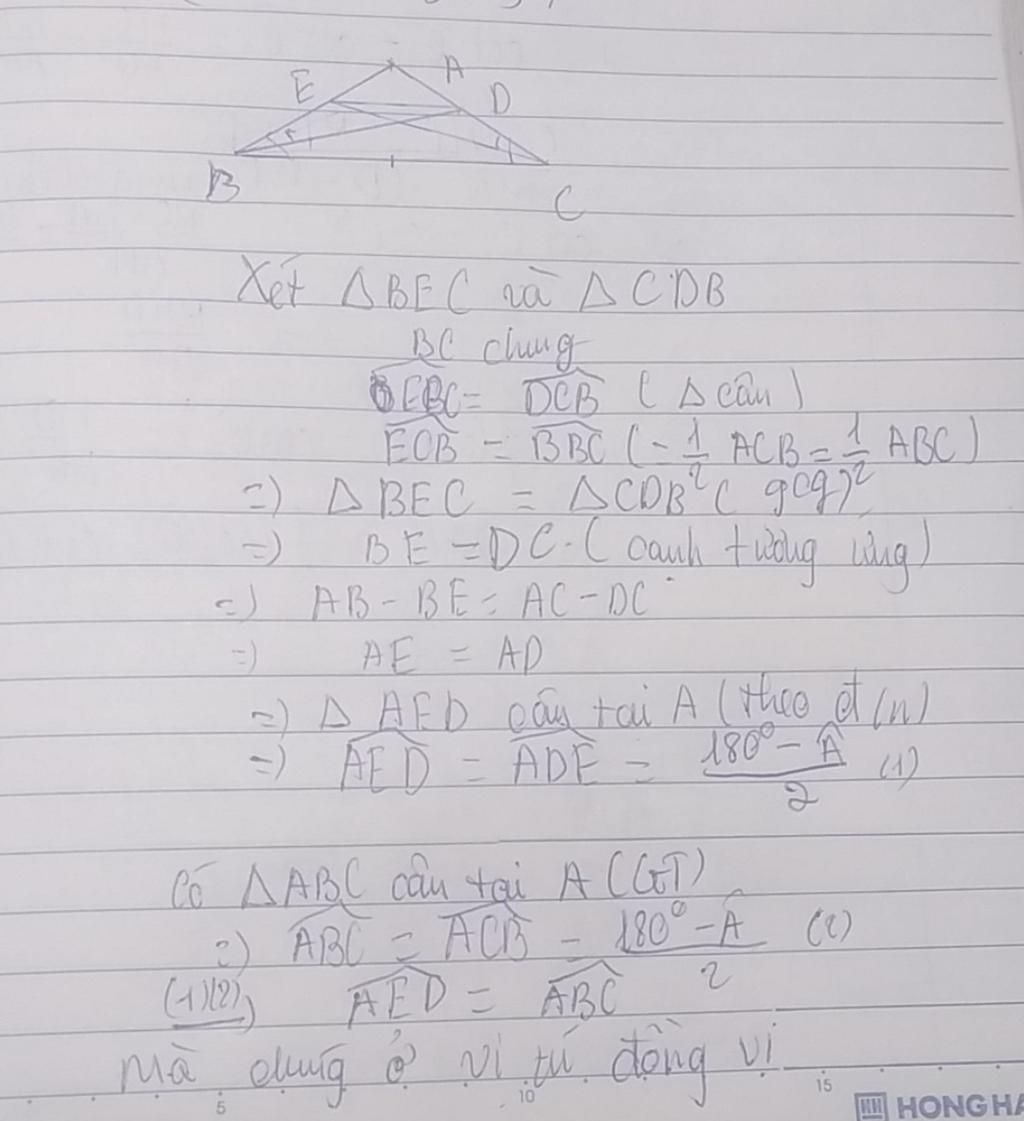 E A D
B C
Xét Δ BEC và Δ CDB
BC chung
EBC = DCB ( Δ cân )
ECB = BBC ( = 1/2 ACB = 1/2 ABC )
=) Δ BEC = Δ CDB ( gcg )
=) BE = DC. ( cạnh tương ứng )
=) AB - BE = AC - DC
=) AE = AD
=) Δ AED cân tại A ( theo đ/n )
=) AED = ADE = (180° - Â)/2 (1)
Có ΔABC cân tại A (GT)
=) ABC = ACB = (180° - Â)/2 (2)
(1)(2) AED = ABC
Mà chúng ở vị trí đồng vị
5 10 15
HONG HA